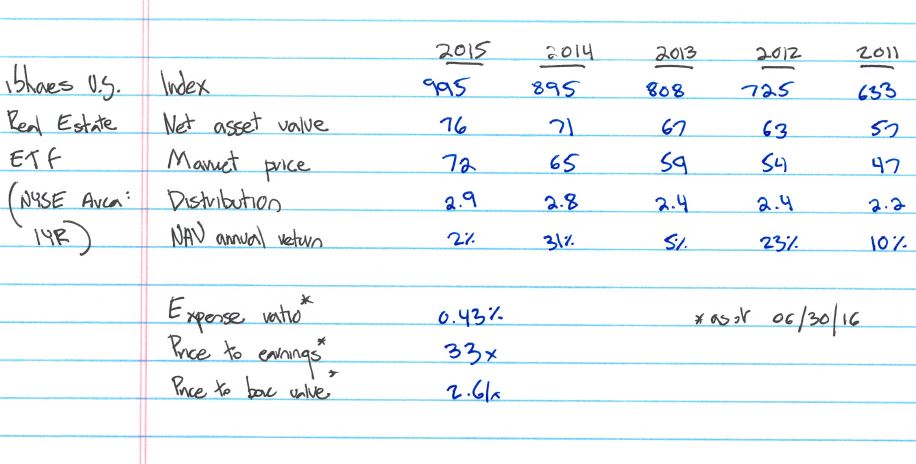 2015 2014 2013 2012 2011
iShares U.S. Index 995 895 808 725 633
Real Estate Net asset value 76 71 67 63 57
ETF Market price 72 65 59 54 47
(NYSE Arca: Distribution 2.9 2.8 2.4 2.4 2.2
IYR) NAV annual return 2% 31% 5% 23% 10%
Expense ratio* 0.43% *as of 06/30/16
Price to earnings* 33x
Price to book value* 2.61x